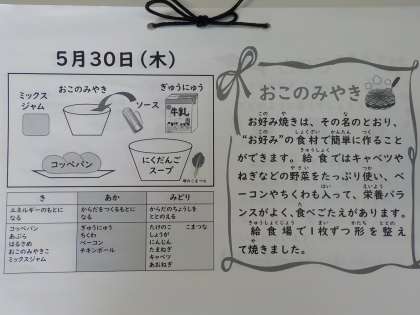 5月30日(木)
ミックス
ジャム
おこのみやき
ソース
ぎゅうにゅう
牛乳
コッペパン
にくだんご
スープ
き
あか
みどり
エネルギーのもとに
なる
からだをつくるもとに
なる
からだのちょうしを
ととのえる
コッペパン
あぶら
はるさめ
おこのみやきこ
ミックスジャム
ぎゅうにゅう
ちくわ
ベーコン
チキンボール
たけのこ こまつな
しょうが
にんじん
たまねぎ
キャベツ
あおねぎ
おこのみやき
お好み焼きは、その名のとおり、
“お好み”の食材で簡単に作ること
ができます。給食ではキャベツや
ねぎなどの野菜をたっぷり使い、ベ
ーコンやちくわも入って、栄養バラ
ンスがよく、食べごたえがあります。
給食場で1枚ずつ形を整え
て焼きました。